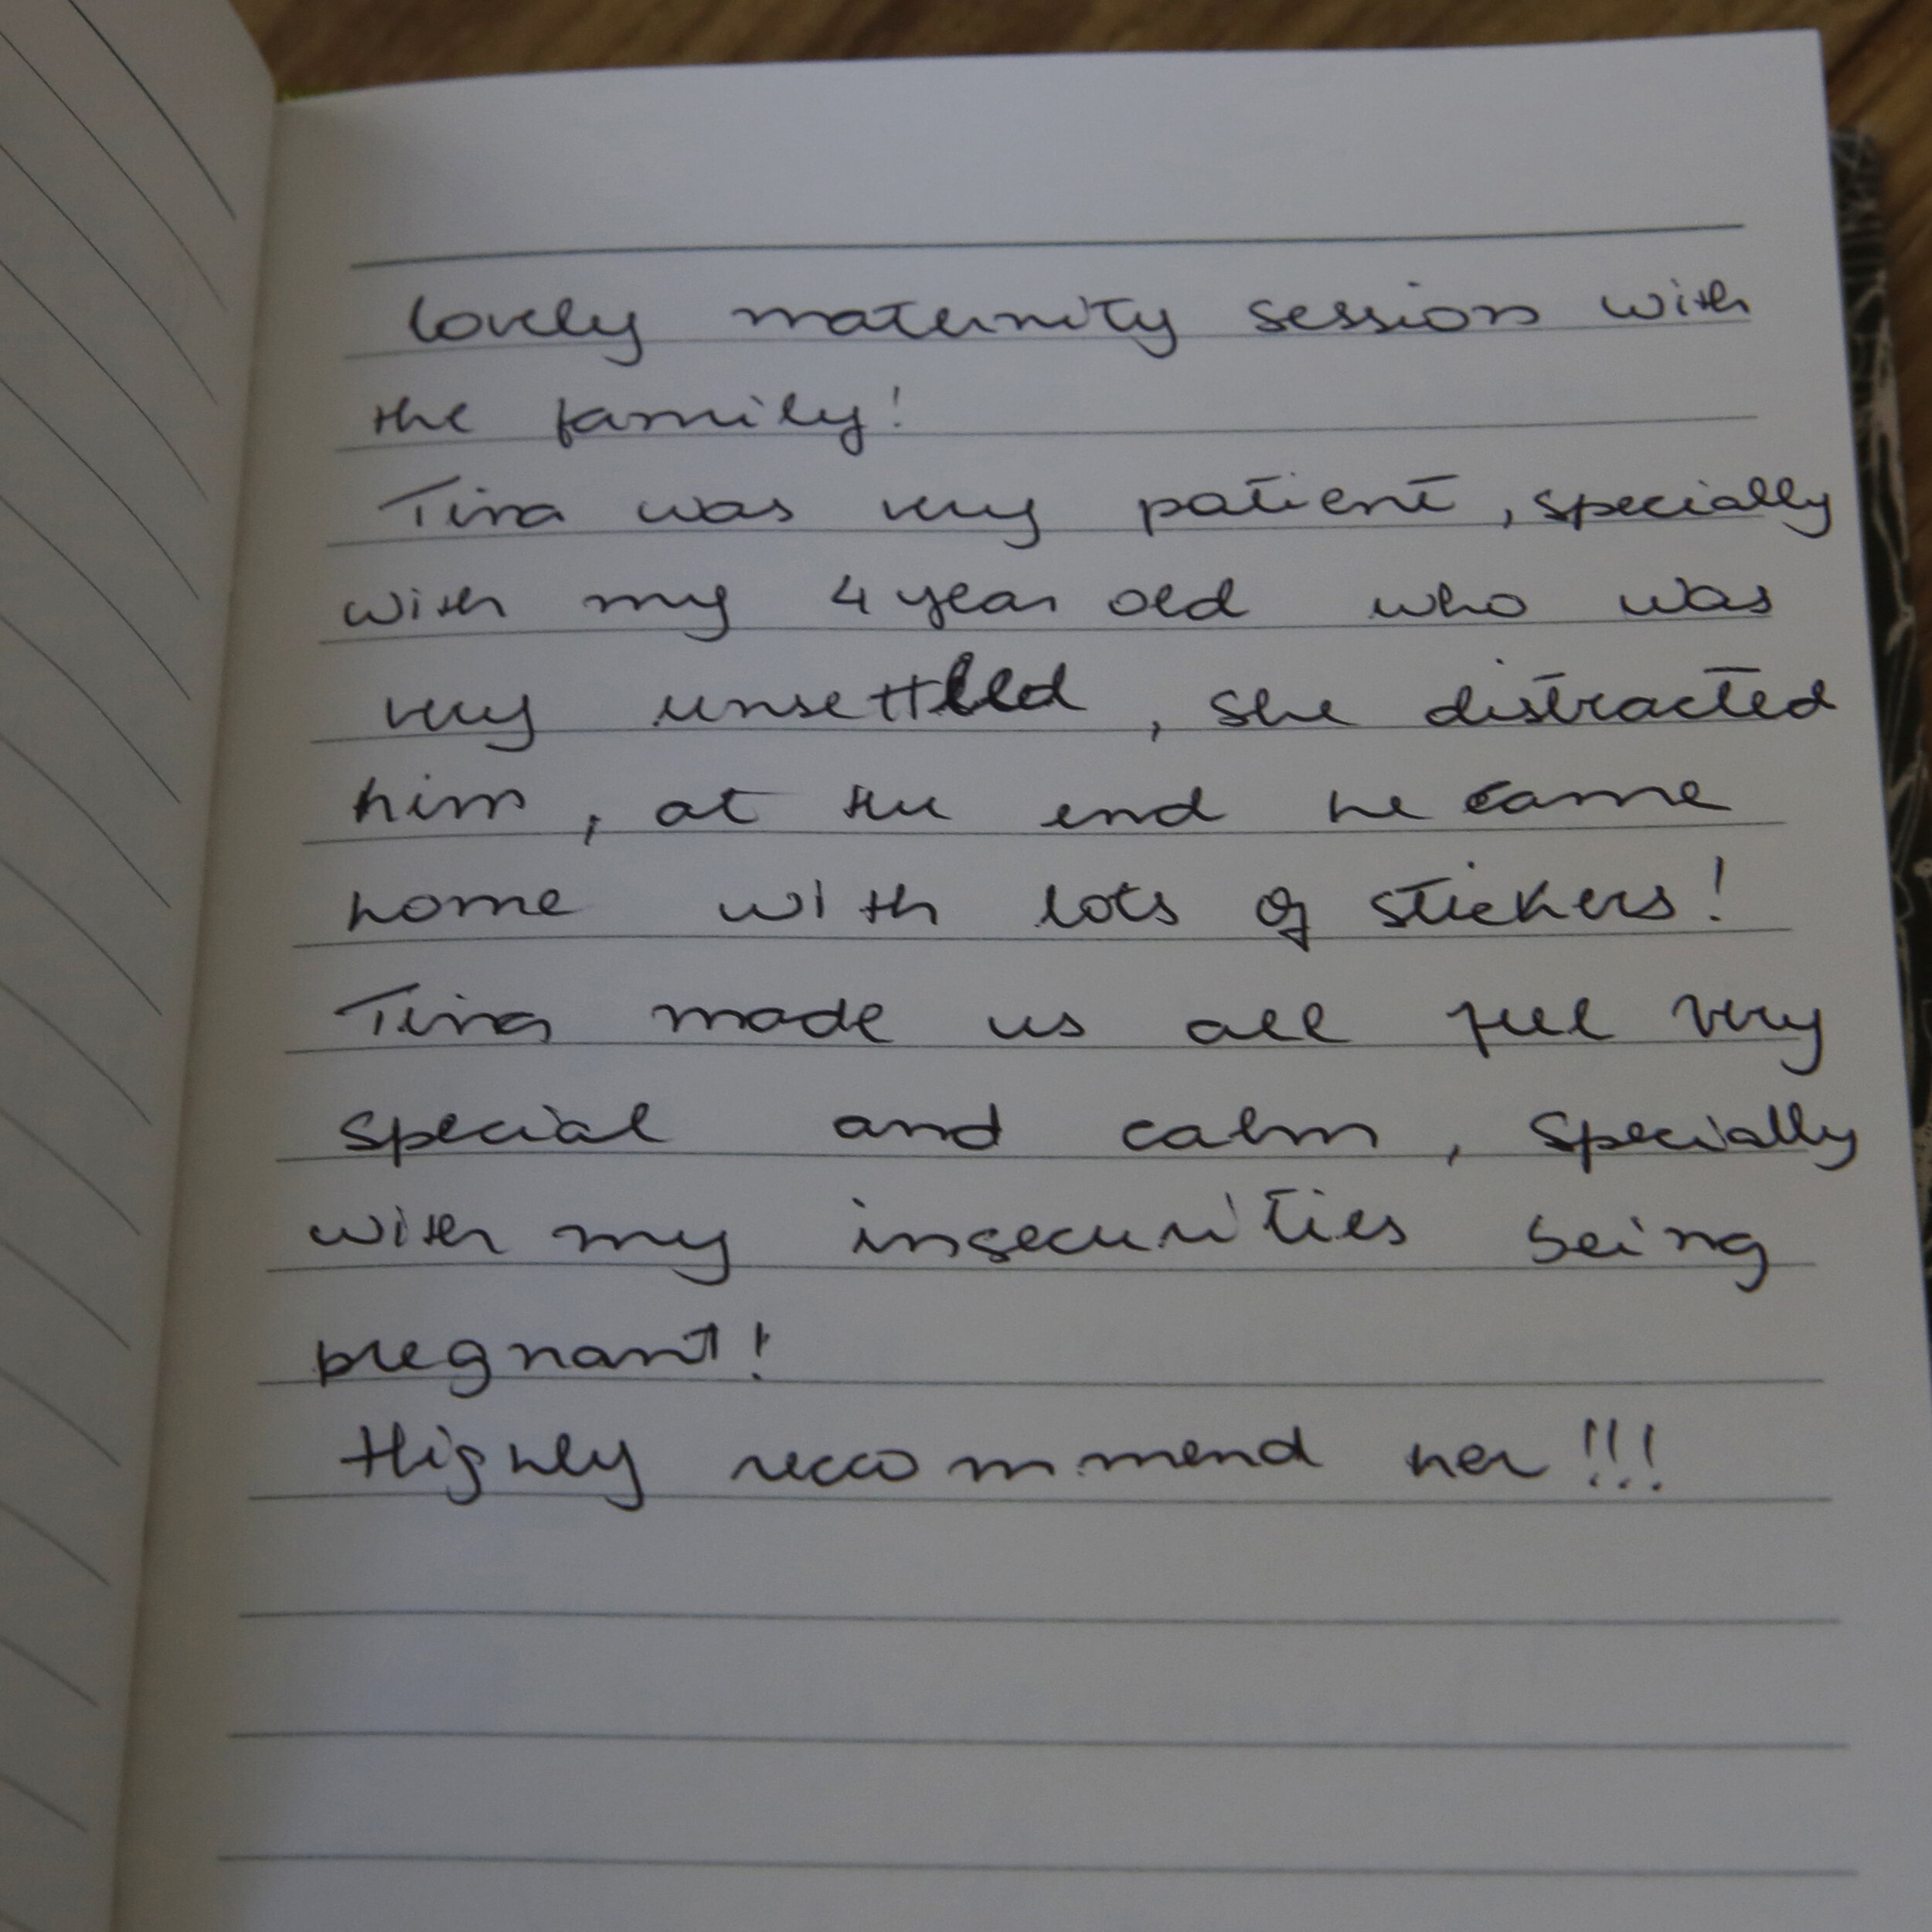 lovely maternity session with
the family!
Tina was very patient, specially
with my 4 year old who was
very unsettled, she distracted
him, at the end he came
home with lots of stickers!
Tina made us all feel very
special and calm, specially
with my insecurities being
pregnant!
Highly recommend her!!!